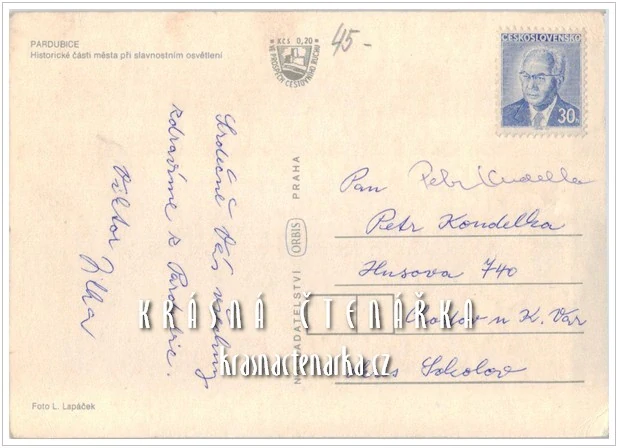 PARDUBICE
Historické části města při slavnostním osvětlení
KČS 0,20
VE PROSPĚCH CESTOVNÍHO RUCHU
45-
ČESKOSLOVENSKO
30h
Srdečně Vás všechny
zdravíme z Pardubic.
Viktor Jilha
NAKLADATELSTVÍ ORBIS PRAHA
Pan Petr Koudelka
Petr Koudelka
Husova 740
Chodov u K. Var
okres Sokolov
KRÁSNÁ ČTENÁŘKA
krasnactenarka.cz
Foto L. Lapáček